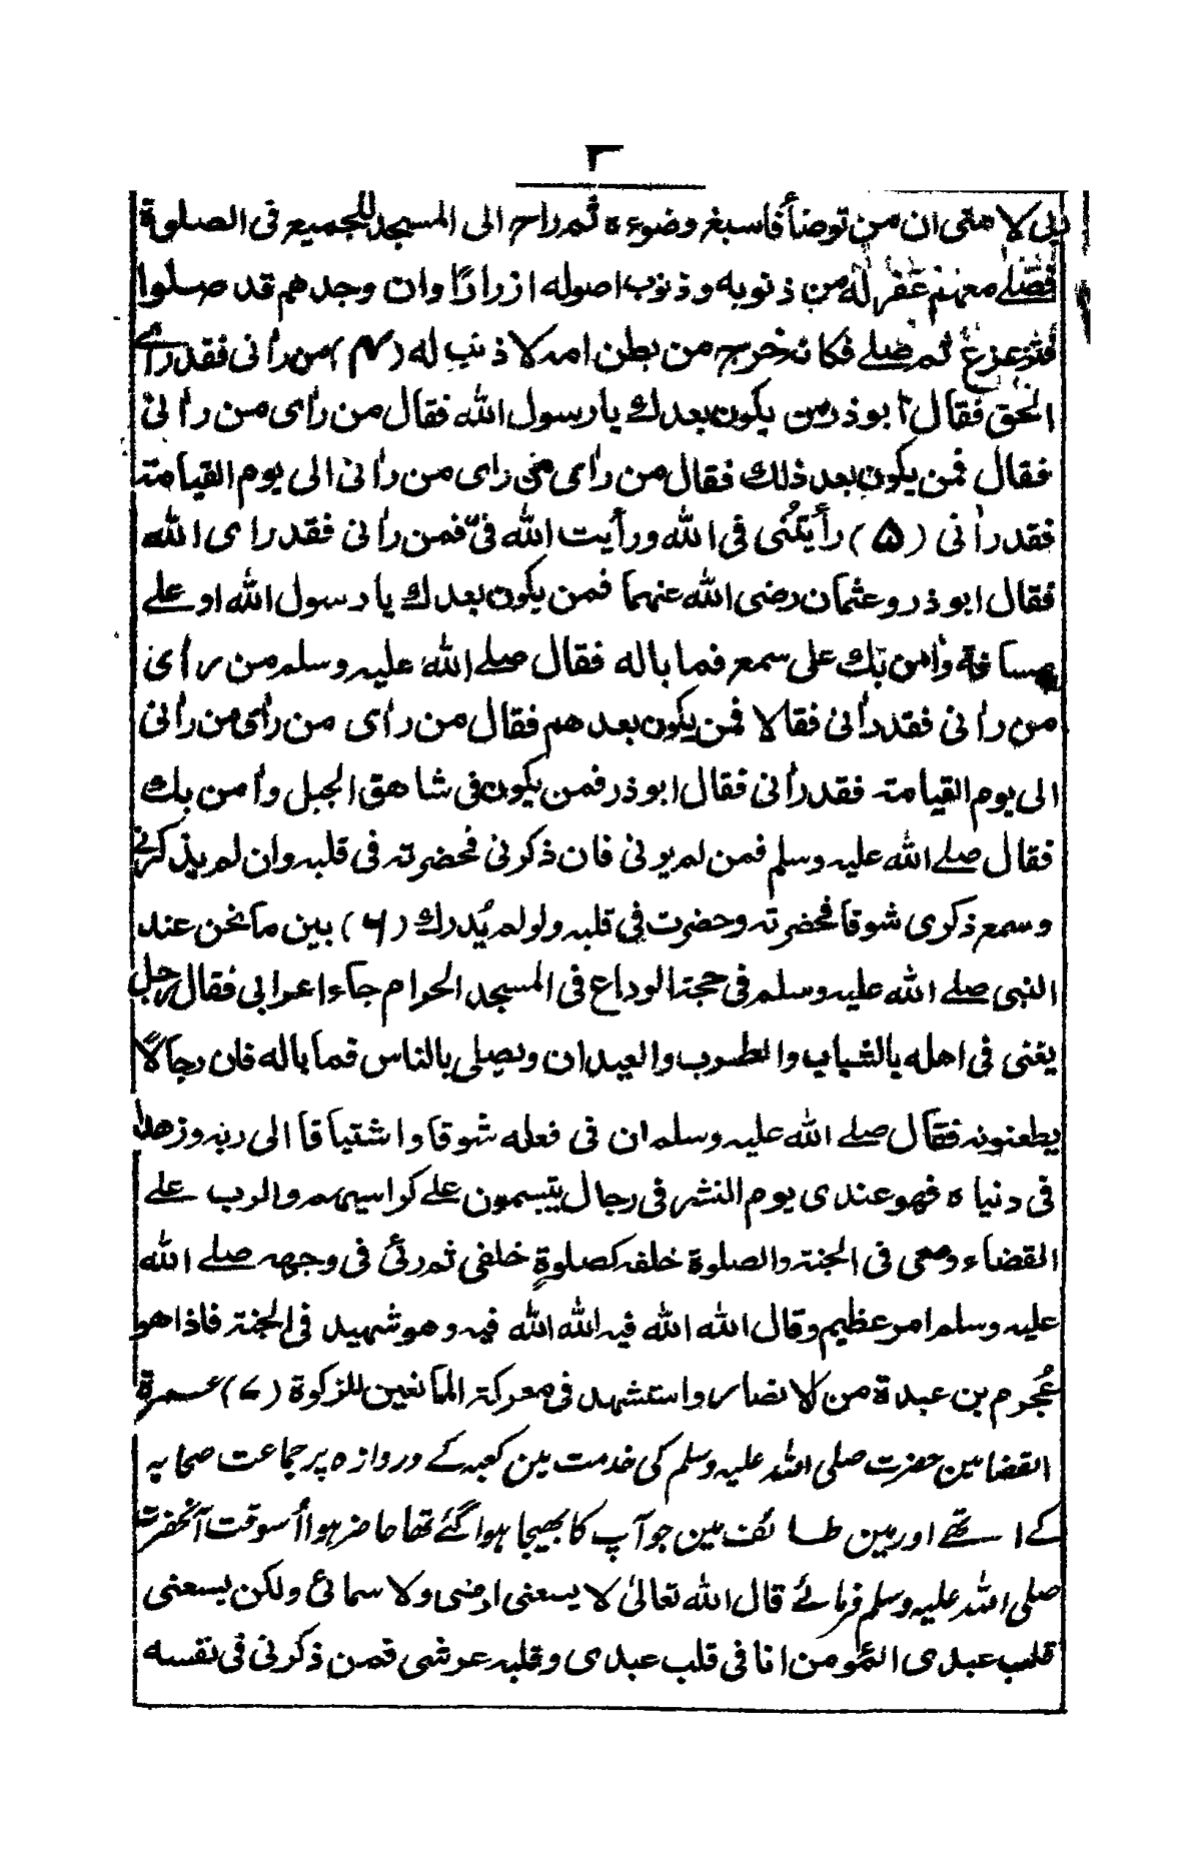 ٣
لی لا متی ان من توضأ فاسبغ وضوءہ ثم راح الی المسجد للجمیع فی الصلوة
فصلے معهم غفر له من ذنوبه و ذنوب اصوله ازرارًا وان وجدهم قد صلوا
ثم صلے فکانہ خرج من بطن امہ لا ذنب له (۴) من رأنی فقد رأے
الحق فقال ابوذر من یکون بعدك یا رسول الله فقال من رأی من رأنی
فقال فمن یکون بعد ذلك فقال من رأی من رای من رأنی الی یوم القیامة
فقد رأنی (۵) رأیتُنی فی الله ورأیت الله فیّ فمن رأنی فقد رای الله
فقال ابوذر و عثمان رضی الله عنهما فمن یکون بعدك یا رسول الله او علے
مسافة وأمن بك علی سمع فما باله فقال صلے الله علیه وسلم من رأی
من رأنی فقد رأنی فقالا فمن یکون بعدهم فقال من رأی من رأی من رأنی
الی یوم القیامة فقد رأنی فقال ابوذر فمن یکون فی شاهق الجبل وأمن بك
فقال صلے الله علیه وسلم فمن لم یرنی فان ذکرنی فحضرته فی قلبه وان لم یذکرنے
وسمع ذکری شوقا فحضرته وحضرت فی قلبه ولو لم یُدرك (۶) بین ما نحن عند
النبی صلے الله علیه وسلم فی حجة الوداع فی المسجد الحرام جاء اعرابی فقال رجل
یغنی فی اهله بالشباب والطرب والعیدان ویصلی بالناس فما باله فان رجالًا
یطعنونه فقال صلے الله علیه وسلم ان فی فعله شوقا واشتیاقا الی ربه و زهدا
فی دنیاه فهو عندی یوم النشر فی رجال یتبسمون علے کراسیهم والرب علے
القضاء ومعی فی الجنة والصلوة خلفه کصلوةٍ خلفی ثم رئی فی وجهه صلے الله
علیه وسلم امر عظیم وقال الله الله فیه الله الله فیه وهو شهید فی الجنة فاذا هو
عُجرم بن عبدة من لانصار واستشهد فی معرکة المانعین للزکوة (۷) عمرة
القضا مین حضرت صلی اللہ علیہ وسلم کی خدمت مین کعبہ کے دروازہ پر جماعت صحابہ
کے تھے اور مین طائف مین جو آپ کا بھیجا ہوا گئے تھا حاضر ہوا أسوقت آنحضرت
صلی اللہ علیہ وسلم فرمائے قال الله تعالیٰ لا یسعنی ارضی ولا سمائی ولکن یسعنی
قلب عبدی المؤمن انا فی قلب عبدی وقلبه عرشی فمن ذکرنی فی نفسه